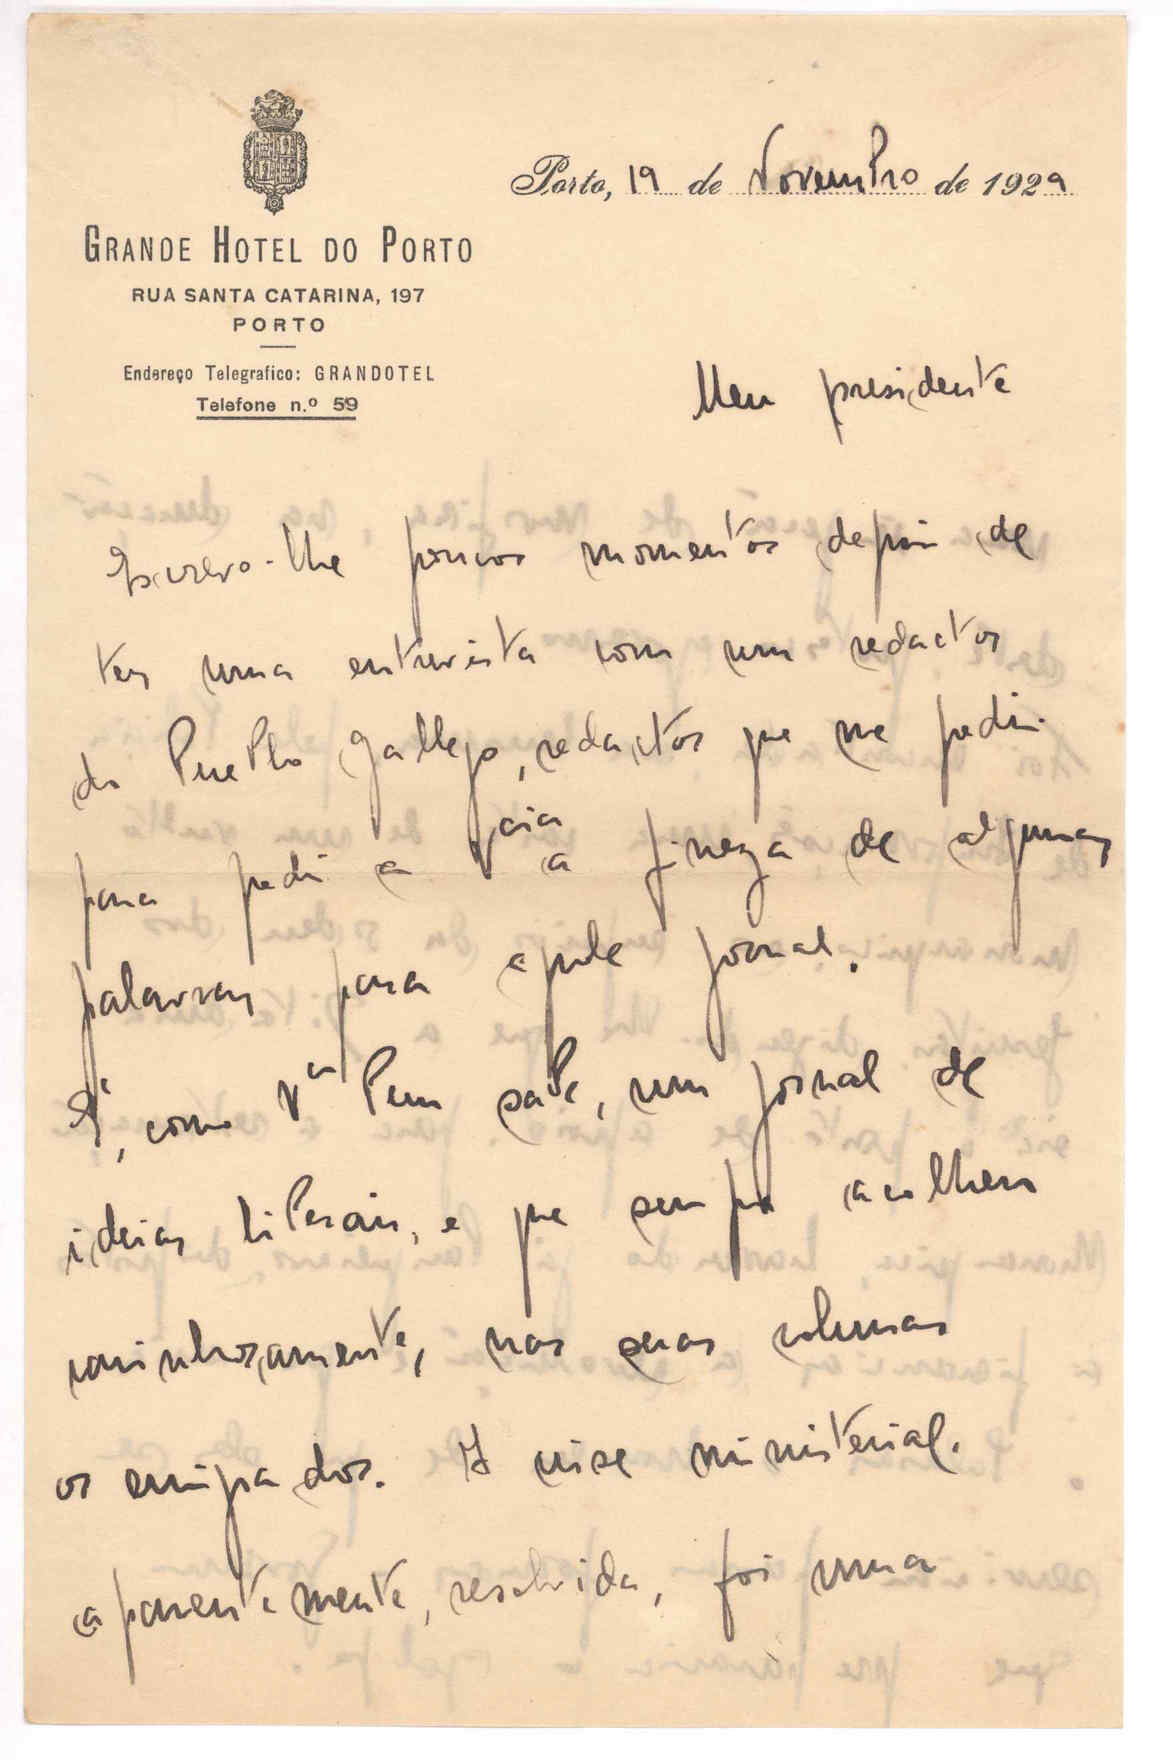 Porto, 19 de Novembro de 1929
GRANDE HOTEL DO PORTO
RUA SANTA CATARINA, 197
PORTO
Endereço Telegrafico: GRANDOTEL
Telefone n.º 59
Meu presidente
Escrevo-lhe poucos momentos depois de
ter uma entrevista com um redactor
do Pueblo Gallego, redactor que me pediu
para pedir a V.ª Ex.ª a fineza de algumas
palavras para aquele jornal.
É, como V.ª bem sabe, um jornal de
ideias liberais, e que sempre acolheu
carinhosamente, nas suas colunas
os emigrados. A crise ministerial.
aparentemente, resolvida, foi uma